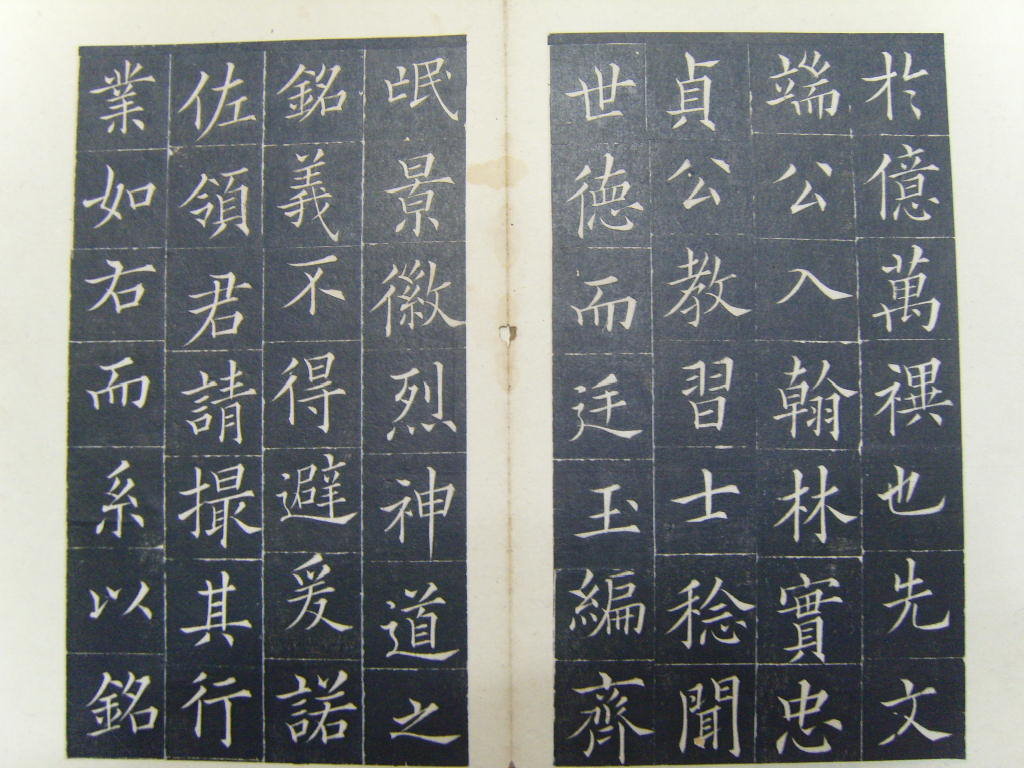 於億萬禩也先文
端公入翰林實忠
貞公教習士稔聞
世德而迋玉編齊
岷景徽烈神道之
銘義不得避爰諾
佐領君請撮其行
業如右而系以銘